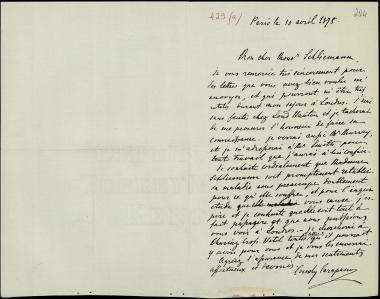 429 (a)
204
Paris le 10 avril 1875.
Mon cher Monsr Schliemann
Je vous remercie très sincèrement pour
les lettres que vous avez bien voulu m'
envoyer, et qui pourront m'être très
utiles durant mon séjour à Londres. J'irai
sans faute chez Lord Stanton et je tacherai
de me procurer l'honneur de faire sa
connaissance. Je verrai aussi Mr Murray
et je m'adresserai à Mr Smith pour
tout travail que j'aurai à lui confier.
Je souhaite cordialement que Madame
Schliemann soit promptement rétablie
sa maladie nous préoccupe doublement
pour ce qu'elle souffre, et pour l'inqui
étude que vous cause; j'es
père et je souhaite qu'elle soit tout à
fait passagère et que nous puissions
vous voir à Londres. Je chercherai à
Charing Cross Hotel s'il pourrait
y avoir pour vous et je vous les enverrai
Agréez l'assurance de mes sentiments
affectueux et dévoués
Carapanos